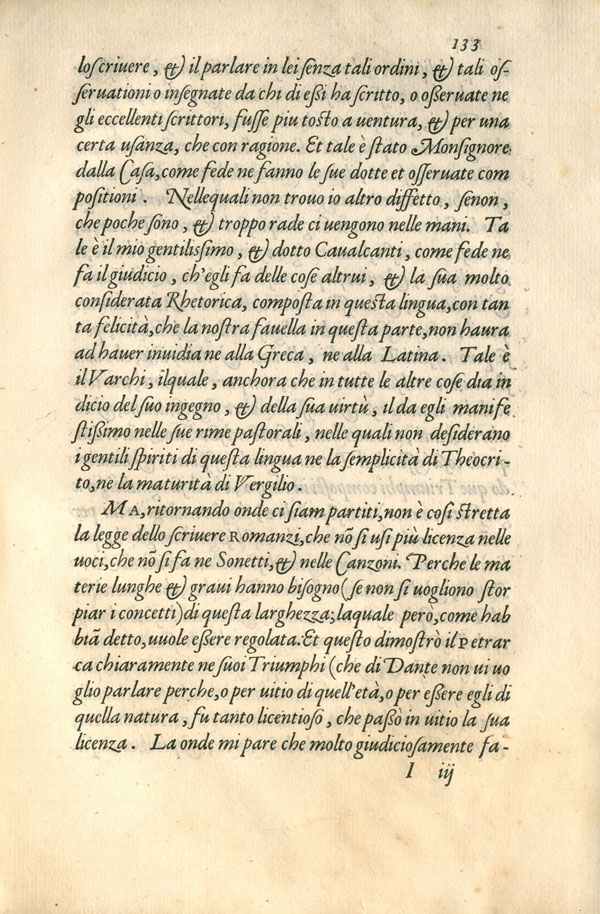 133
lo scriuere, & il parlare in lei senza tali ordini, & tali os-
seruationi o insegnate da chi di essi ha scritto, o osseruate ne
gli eccellenti scrittori, fusse piu tosto a uentura, & per una
certa usanza, che con ragione. Et tale è stato Monsignore
dalla Casa, come fede ne fanno le sue dotte et osseruate com
positioni. Nellequali non trouo io altro diffetto, senon,
che poche sono, & troppo rade ci uengono nelle mani. Ta
le è il mio gentilissimo, & dotto Caualcanti, come fede ne
fa il giudicio, ch'egli fa delle cose altrui, & la sua molto
considerata Rhetorica, composta in questa lingua, con tan
ta felicità, che la nostra fauella in questa parte, non haura
ad hauer inuidia ne alla Greca, ne alla Latina. Tale è
il Varchi, ilquale, anchora che in tutte le altre cose dia in
dicio del suo ingegno, & della sua virtù, il da egli manife
stissimo nelle sue rime pastorali, nelle quali non desiderano
i gentili spiriti di questa lingua ne la semplicità di Theocri-
to, ne la maturità di Vergilio.
MA, ritornando onde ci siam partiti, non è cosi stretta
la legge dello scriuere Romanzi, che nõ si usi più licenza nelle
uoci, che nõ si fa ne Sonetti, & nelle Canzoni. Perche le ma
terie lunghe & graui hanno bisogno (se non si uogliono stor
piar i concetti) di questa larghezza; laquale però, come hab
biã detto, uuole essere regolata. Et questo dimostrò il Petrar
ca chiaramente ne suoi Triumphi (che di Dante non ui uo
glio parlare perche, o per uitio di quell'età, o per essere egli di
quella natura, fu tanto licentioso, che passò in uitio la sua
licenza. La onde mi pare che molto giudiciosamente fa-
I iij